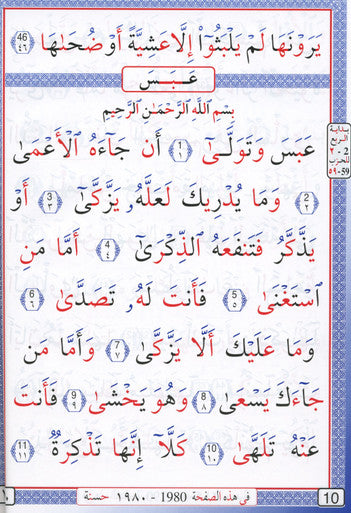 يَرَوْنَهَا لَمْ يَلْبَثُوٓا۟ إِلَّا عَشِيَّةً أَوْ ضُحَىٰهَا 46 ٤٦
عَبَسَ
بِسْمِ اللَّهِ الرَّحْمَـٰنِ الرَّحِيمِ
عَبَسَ وَتَوَلَّىٰٓ 1 ١ أَن جَآءَهُ الْأَعْمَىٰ
2 ٢ وَمَا يُدْرِيكَ لَعَلَّهُۥ يَزَّكَّىٰٓ 3 ٣ أَوْ
يَذَّكَّرُ فَتَنفَعَهُ الذِّكْرَىٰٓ 4 ٤ أَمَّا مَنِ
اسْتَغْنَىٰ 5 ٥ فَأَنتَ لَهُۥ تَصَدَّىٰ 6 ٦
وَمَا عَلَيْكَ أَلَّا يَزَّكَّىٰ 7 ٧ وَأَمَّا مَن
جَآءَكَ يَسْعَىٰ 8 ٨ وَهُوَ يَخْشَىٰ 9 ٩ فَأَنتَ
عَنْهُ تَلَهَّىٰ 10 ١٠ كَلَّآ إِنَّهَا تَذْكِرَةٌ 11 ١١
بداية
الربع
2 - ٢
للحزب
59-٥٩
في هذه الصفحة 1980 - ١٩٨٠ حسنة
10